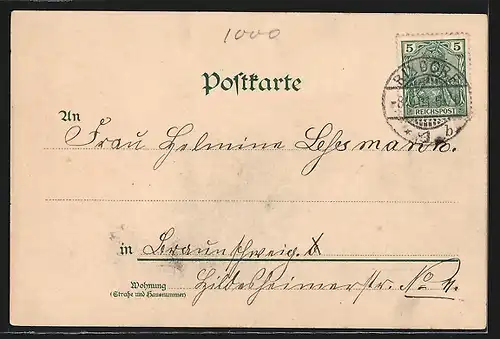 1000
Postkarte
5 5
REICHSPOST
RIXDORF
* 1 b
An
Frau Helmine Lehsmann.
in Braunschweig.
Wohnung
(Straße und Hausnummer)
Hildesheimerstr. No 4.